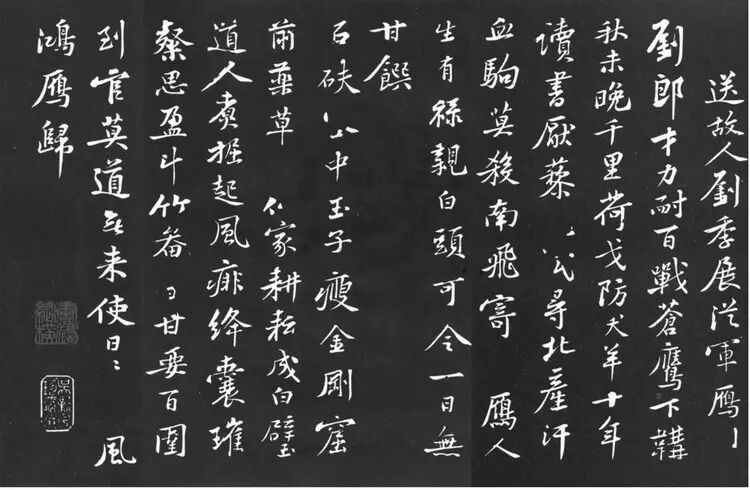 送故人劉季展從軍鴈
劉郎才力耐百戰蒼鷹下韝
秋未晚千里荷戈防犬羊十年
讀書厭藜尋北產汗
血駒莫殺南飛寄鴈人
生有祿親白頭可令一日無
甘饌
石砆中玉子瘦金剛窟
前藥草家耕耘成白璧
道人煮掘起風痱絳囊璀
璨思盈斗竹畚甘要百圍
到官莫道無来使日日風
鴻鴈歸